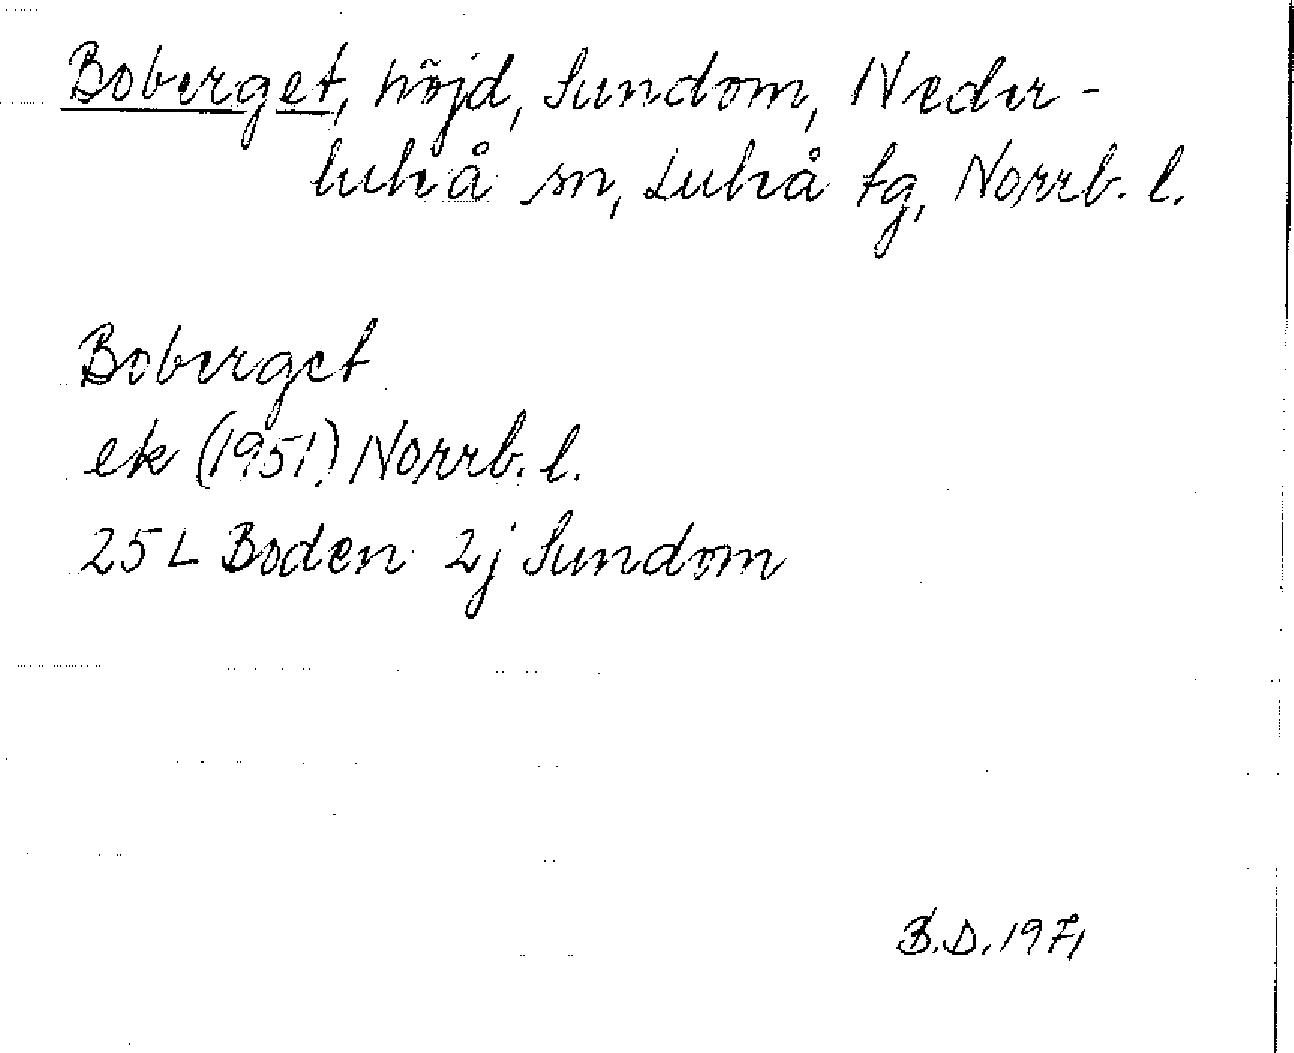 Boberget, höjd, Sundom, Neder-
luleå sn, Luleå tg, Norrb. l.
Boberget
ek (1951) Norrb. l.
25 L Boden 2j Sundom
B.D. 1971